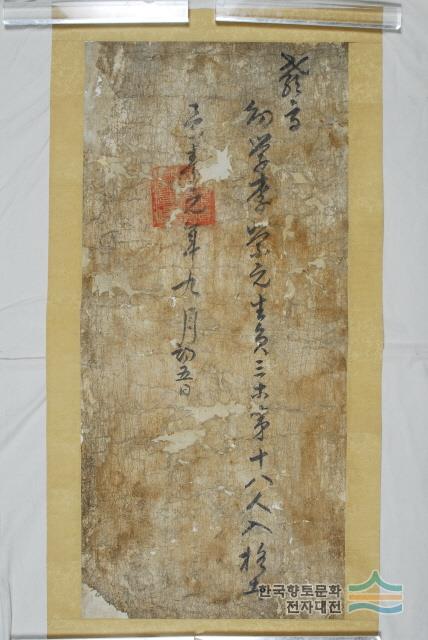 敎旨
幼學李榮元生員三等第十八人入格者
景泰元年九月初五日
한국향토문화
전자대전